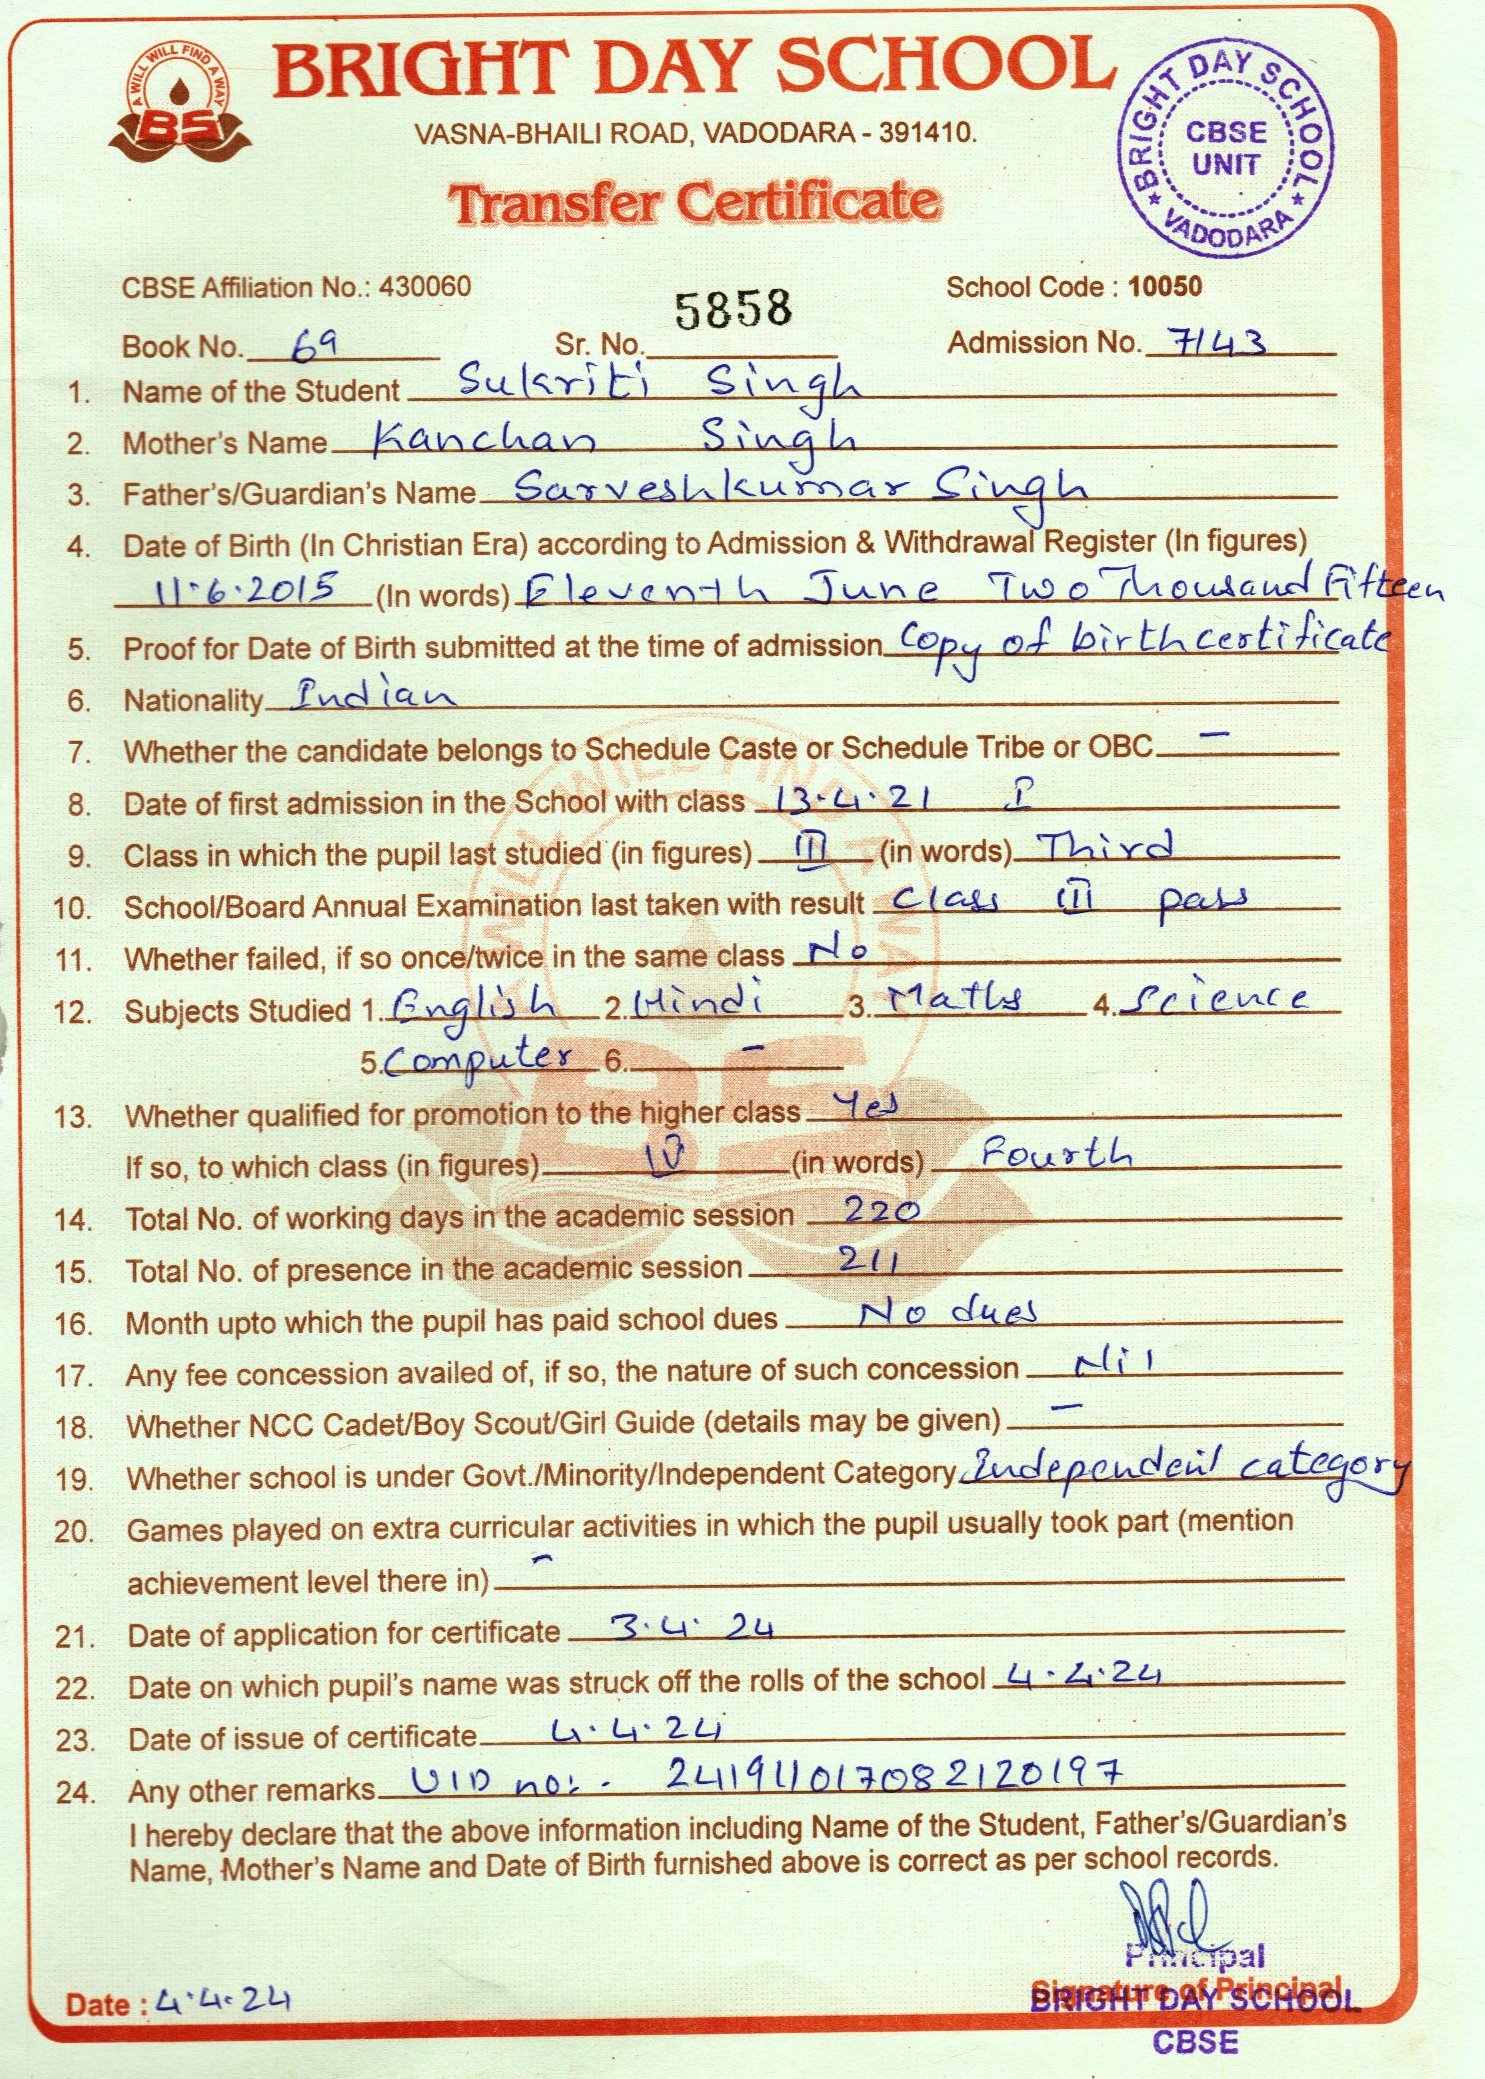 A WILL WILL FIND A WAY
BS
BRIGHT DAY SCHOOL
VASNA-BHAILI ROAD, VADODARA - 391410.
Transfer Certificate
BRIGHT DAY SCHOOL
CBSE
UNIT
★ VADODARA ★
CBSE Affiliation No.: 430060 5858 School Code : 10050
Book No. 69 Sr. No. Admission No. 7143
1. Name of the Student Sukriti Singh
2. Mother's Name Kanchan Singh
3. Father's/Guardian's Name Sarveshkumar Singh
4. Date of Birth (In Christian Era) according to Admission & Withdrawal Register (In figures)
11.6.2015 (In words) Eleventh June Two Thousand Fifteen
5. Proof for Date of Birth submitted at the time of admission Copy of birth certificate
6. Nationality Indian
7. Whether the candidate belongs to Schedule Caste or Schedule Tribe or OBC –
8. Date of first admission in the School with class 13.4.21 I
9. Class in which the pupil last studied (in figures) III (in words) Third
10. School/Board Annual Examination last taken with result Class III pass
11. Whether failed, if so once/twice in the same class No
12. Subjects Studied 1. English 2. Hindi 3. Maths 4. Science
5. Computer 6. –
13. Whether qualified for promotion to the higher class Yes
If so, to which class (in figures) IV (in words) Fourth
14. Total No. of working days in the academic session 220
15. Total No. of presence in the academic session 211
16. Month upto which the pupil has paid school dues No dues
17. Any fee concession availed of, if so, the nature of such concession Nil
18. Whether NCC Cadet/Boy Scout/Girl Guide (details may be given) –
19. Whether school is under Govt./Minority/Independent Category Independent category
20. Games played on extra curricular activities in which the pupil usually took part (mention
achievement level there in) –
21. Date of application for certificate 3.4.24
22. Date on which pupil's name was struck off the rolls of the school 4.4.24
23. Date of issue of certificate 4.4.24
24. Any other remarks UID no:- 241911017082120197
I hereby declare that the above information including Name of the Student, Father's/Guardian's
Name, Mother's Name and Date of Birth furnished above is correct as per school records.
Principal
Signature of Principal
Date : 4.4.24
BRIGHT DAY SCHOOL
CBSE